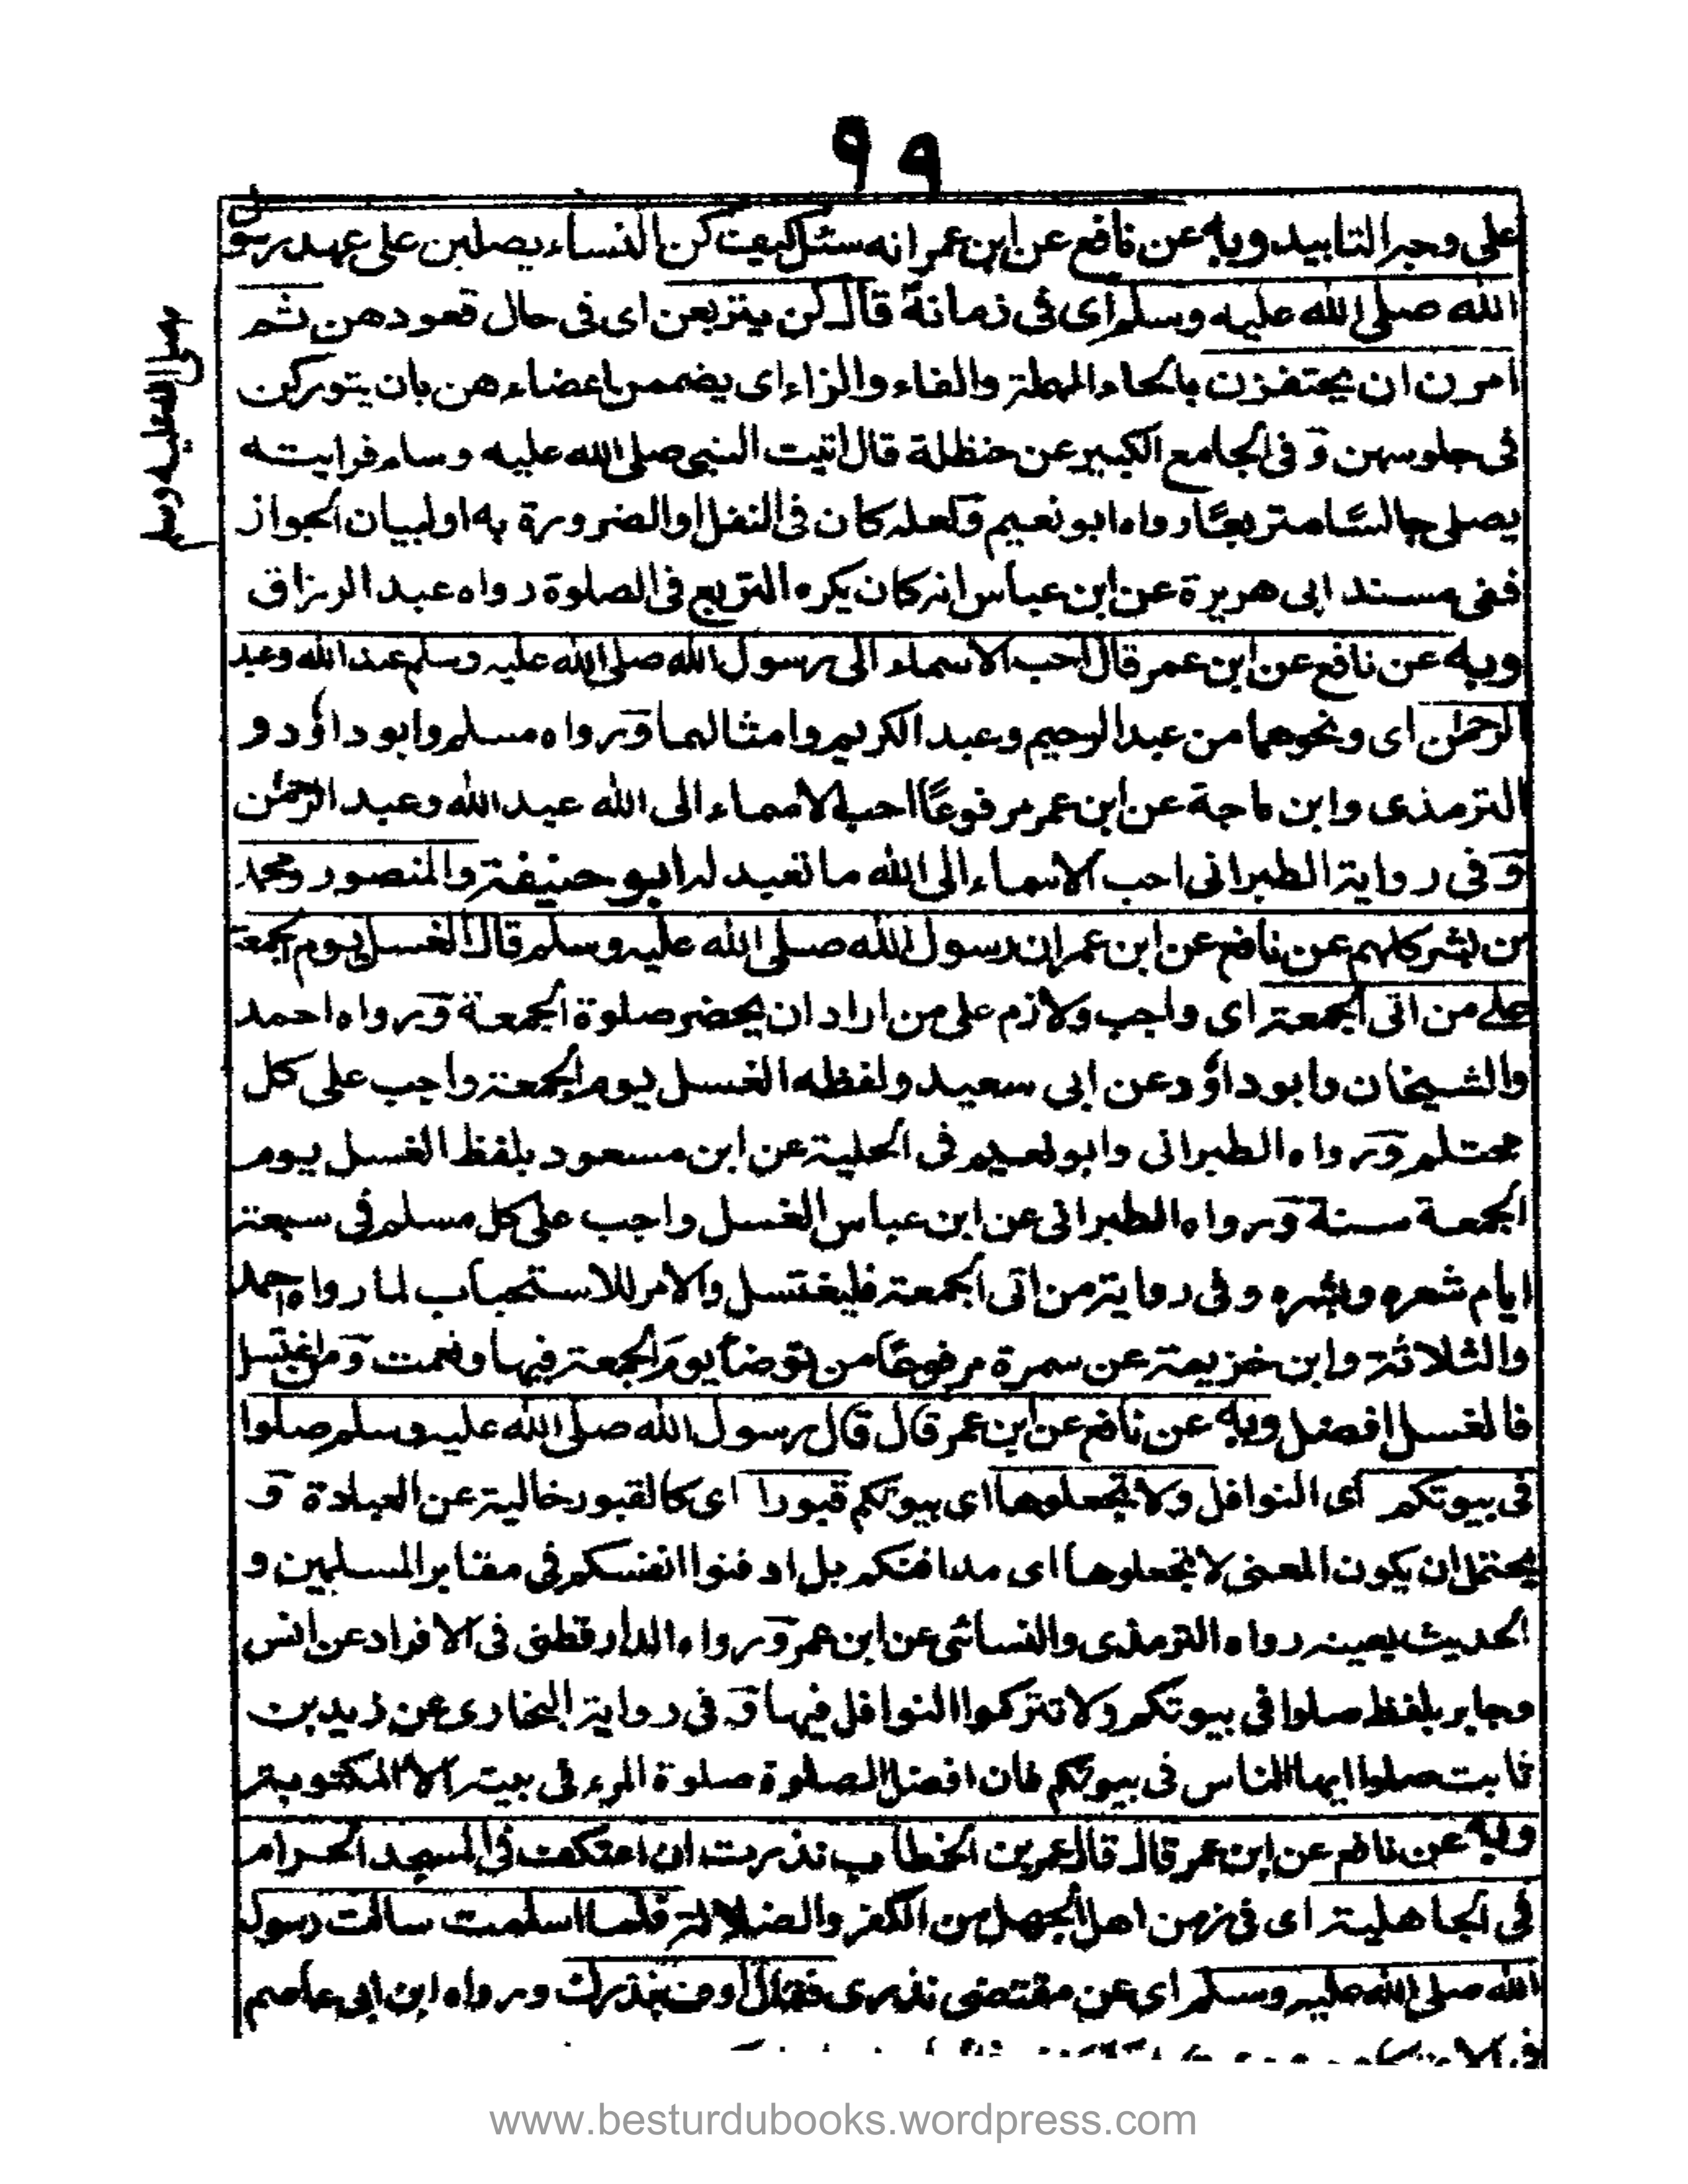 ٩٩
على وجه التابيد وبه عن نافع عن ابن عمر انه سئل كيف كن النساء يصلين على عهد رسول
الله صلى الله عليه وسلم اى فى زمانه قال كن يتربعن اى فى حال قعودهن ثم
امرن ان يحتفزن بالحاء المهملة والفاء والزاء اى يضممن اعضاءهن بان يتوركن
فى جلوسهن و فى الجامع الكبير عن حنظلة قال اتيت النبى صلى الله عليه وسلم فرايته
يصلى جالسًا متربعًا رواه ابو نعيم ولعله كان فى النفل او الضرورة به او لبيان الجواز
ففى مسند ابى هريرة عن ابن عباس انه كان يكره التربع فى الصلوة رواه عبد الرزاق
وبه عن نافع عن ابن عمر قال احب الاسماء الى رسول الله صلى الله عليه وسلم عبد الله وعبد
الرحمٰن اى ونحوهما من عبد الرحيم وعبد الكريم وامثالهما ورواه مسلم وابو داؤد و
الترمذى وابن ماجة عن ابن عمر مرفوعًا احب الاسماء الى الله عبد الله وعبد الرحمٰن
و فى رواية الطبرانى احب الاسماء الى الله ما تعبد له ابو حنيفة والمنصور ومحمد
بن بشر كلهم عن نافع عن ابن عمر ان رسول الله صلى الله عليه وسلم قال الغسل يوم الجمعة
على من اتى الجمعة اى واجب ولازم على من اراد ان يحضر صلوة الجمعة ورواه احمد
والشيخان وابو داؤد عن ابى سعيد ولفظه الغسل يوم الجمعة واجب على كل
محتلم ورواه الطبرانى وابو نعيم فى الحلية عن ابن مسعود بلفظ الغسل يوم
الجمعة سنة ورواه الطبرانى عن ابن عباس الغسل واجب على كل مسلم فى سبعة
ايام شعره وبشره وفى رواية من اتى الجمعة فليغتسل والامر للاستحباب لما رواه احمد
والثلاثة وابن خزيمة عن سمرة مرفوعًا من توضأ يوم الجمعة فبها ونعمت ومن اغتسل
فالغسل افضل وبه عن نافع عن ابن عمر قال قال رسول الله صلى الله عليه وسلم صلوا
فى بيوتكم اى النوافل ولا تجعلوها اى بيوتكم قبورا اى كالقبور خالية عن العبادة و
يحتمل ان يكون المعنى لا تجعلوها اى مدافنكم بل ادفنوا انفسكم فى مقابر المسلمين و
الحديث بعينه رواه الترمذى والنسائى عن ابن عمر ورواه الدار قطنى فى الافراد عن انس
وجابر بلفظ صلوا فى بيوتكم ولا تتركوا النوافل فيها و فى رواية البخارى عن زيد بن
ثابت صلوا ايها الناس فى بيوتكم فان افضل الصلوة صلوة المرء فى بيته الا المكتوبة
وبه عن نافع عن ابن عمر قال قال عمر بن الخطاب نذرت ان اعتكف فى المسجد الحرام
فى الجاهلية اى فى زمن اهل الجهل من الكفر والضلالة فلما اسلمت سالت رسول
الله صلى الله عليه وسلم اى عن مقتضى نذرى فقال اوف بنذرك ورواه ابن ابى عاصم
صلى الله عليه وسلم
www.besturdubooks.wordpress.com